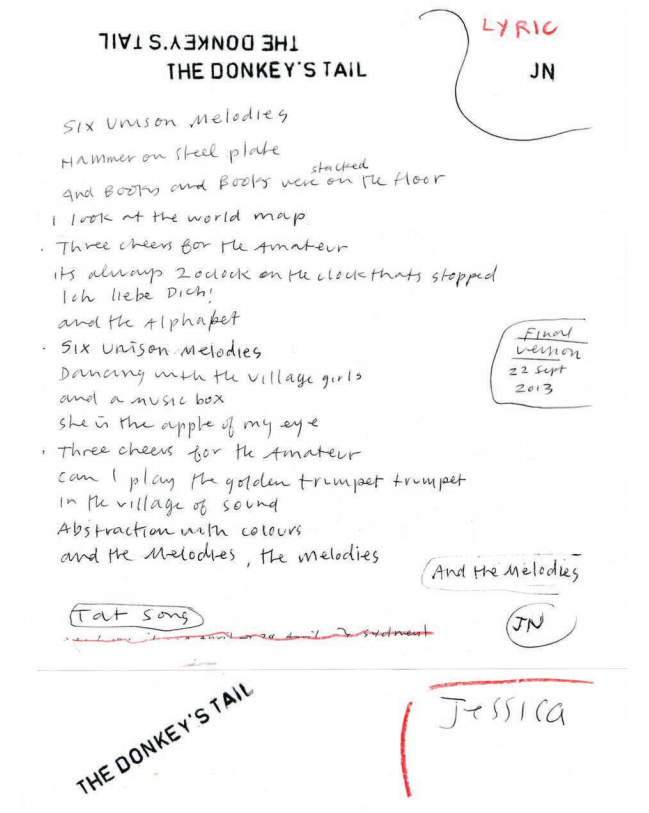 THE DONKEY'S TAIL
THE DONKEY'S TAIL
LYRIC
JN
Six Unison Melodies
Hammer on steel plate
stacked
And Books and Books were on the floor
I look at the world map
· Three cheers for the Amateur
its always 2 oclock on the clock thats stopped
Ich liebe Dich!
and the Alphabet
· Six Unison Melodies
Dancing with the village girls
and a music box
she is the apple of my eye
· Three cheers for the Amateur
can I play the golden trumpet trumpet
in the village of sound
Abstraction with colours
and the Melodies, the melodies
Final
version
22 Sept
2013
And the Melodies
Tat Song
JN
THE DONKEY'S TAIL
Jessica